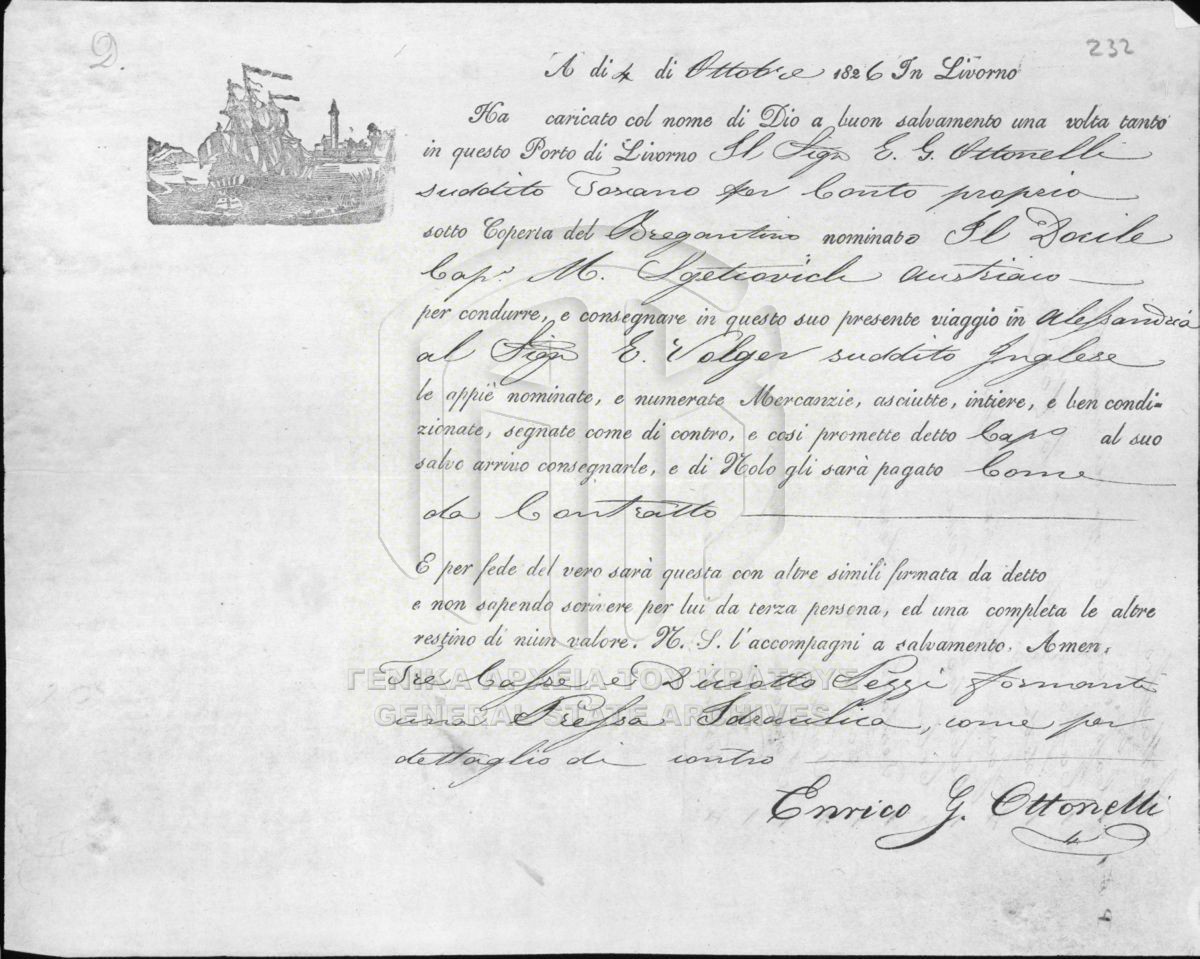 D.
232
A di 4 di Ottobre 1826 In Livorno
Ha caricato col nome di Dio a buon salvamento una volta tanto
in questo Porto di Livorno Il Sigr E. G. Ottonelli
suddito Toscano per Conto proprio
sotto Coperta del Bregantino nominato Il Docile
Capo M. Sgetrovich Austriaco
per condurre, e consegnare in questo suo presente viaggio in Alessandria
al Sigr E. Volger suddito Inglese
le appiè nominate, e numerate Mercanzie, asciutte, intiere, e ben condi=
zionate, segnate come di contro, e cosi promette detto Capo al suo
salvo arrivo consegnarle, e di Nolo gli sarà pagato Come
da Contratto
E per fede del vero sarà questa con altre simili firmata da detto
e non sapendo scrivere per lui da terza persona, ed una completa le altre
restino di niun valore. N. S. l'accompagni a salvamento. Amen.
Tre Casse e Diciotto Pezzi formanti
una Pressa Idraulica, come per
dettaglio di contro
Enrico G. Ottonelli
ΓΕΝΙΚΑ ΑΡΧΕΙΑ ΤΟΥ ΚΡΑΤΟΥΣ
GENERAL STATE ARCHIVES